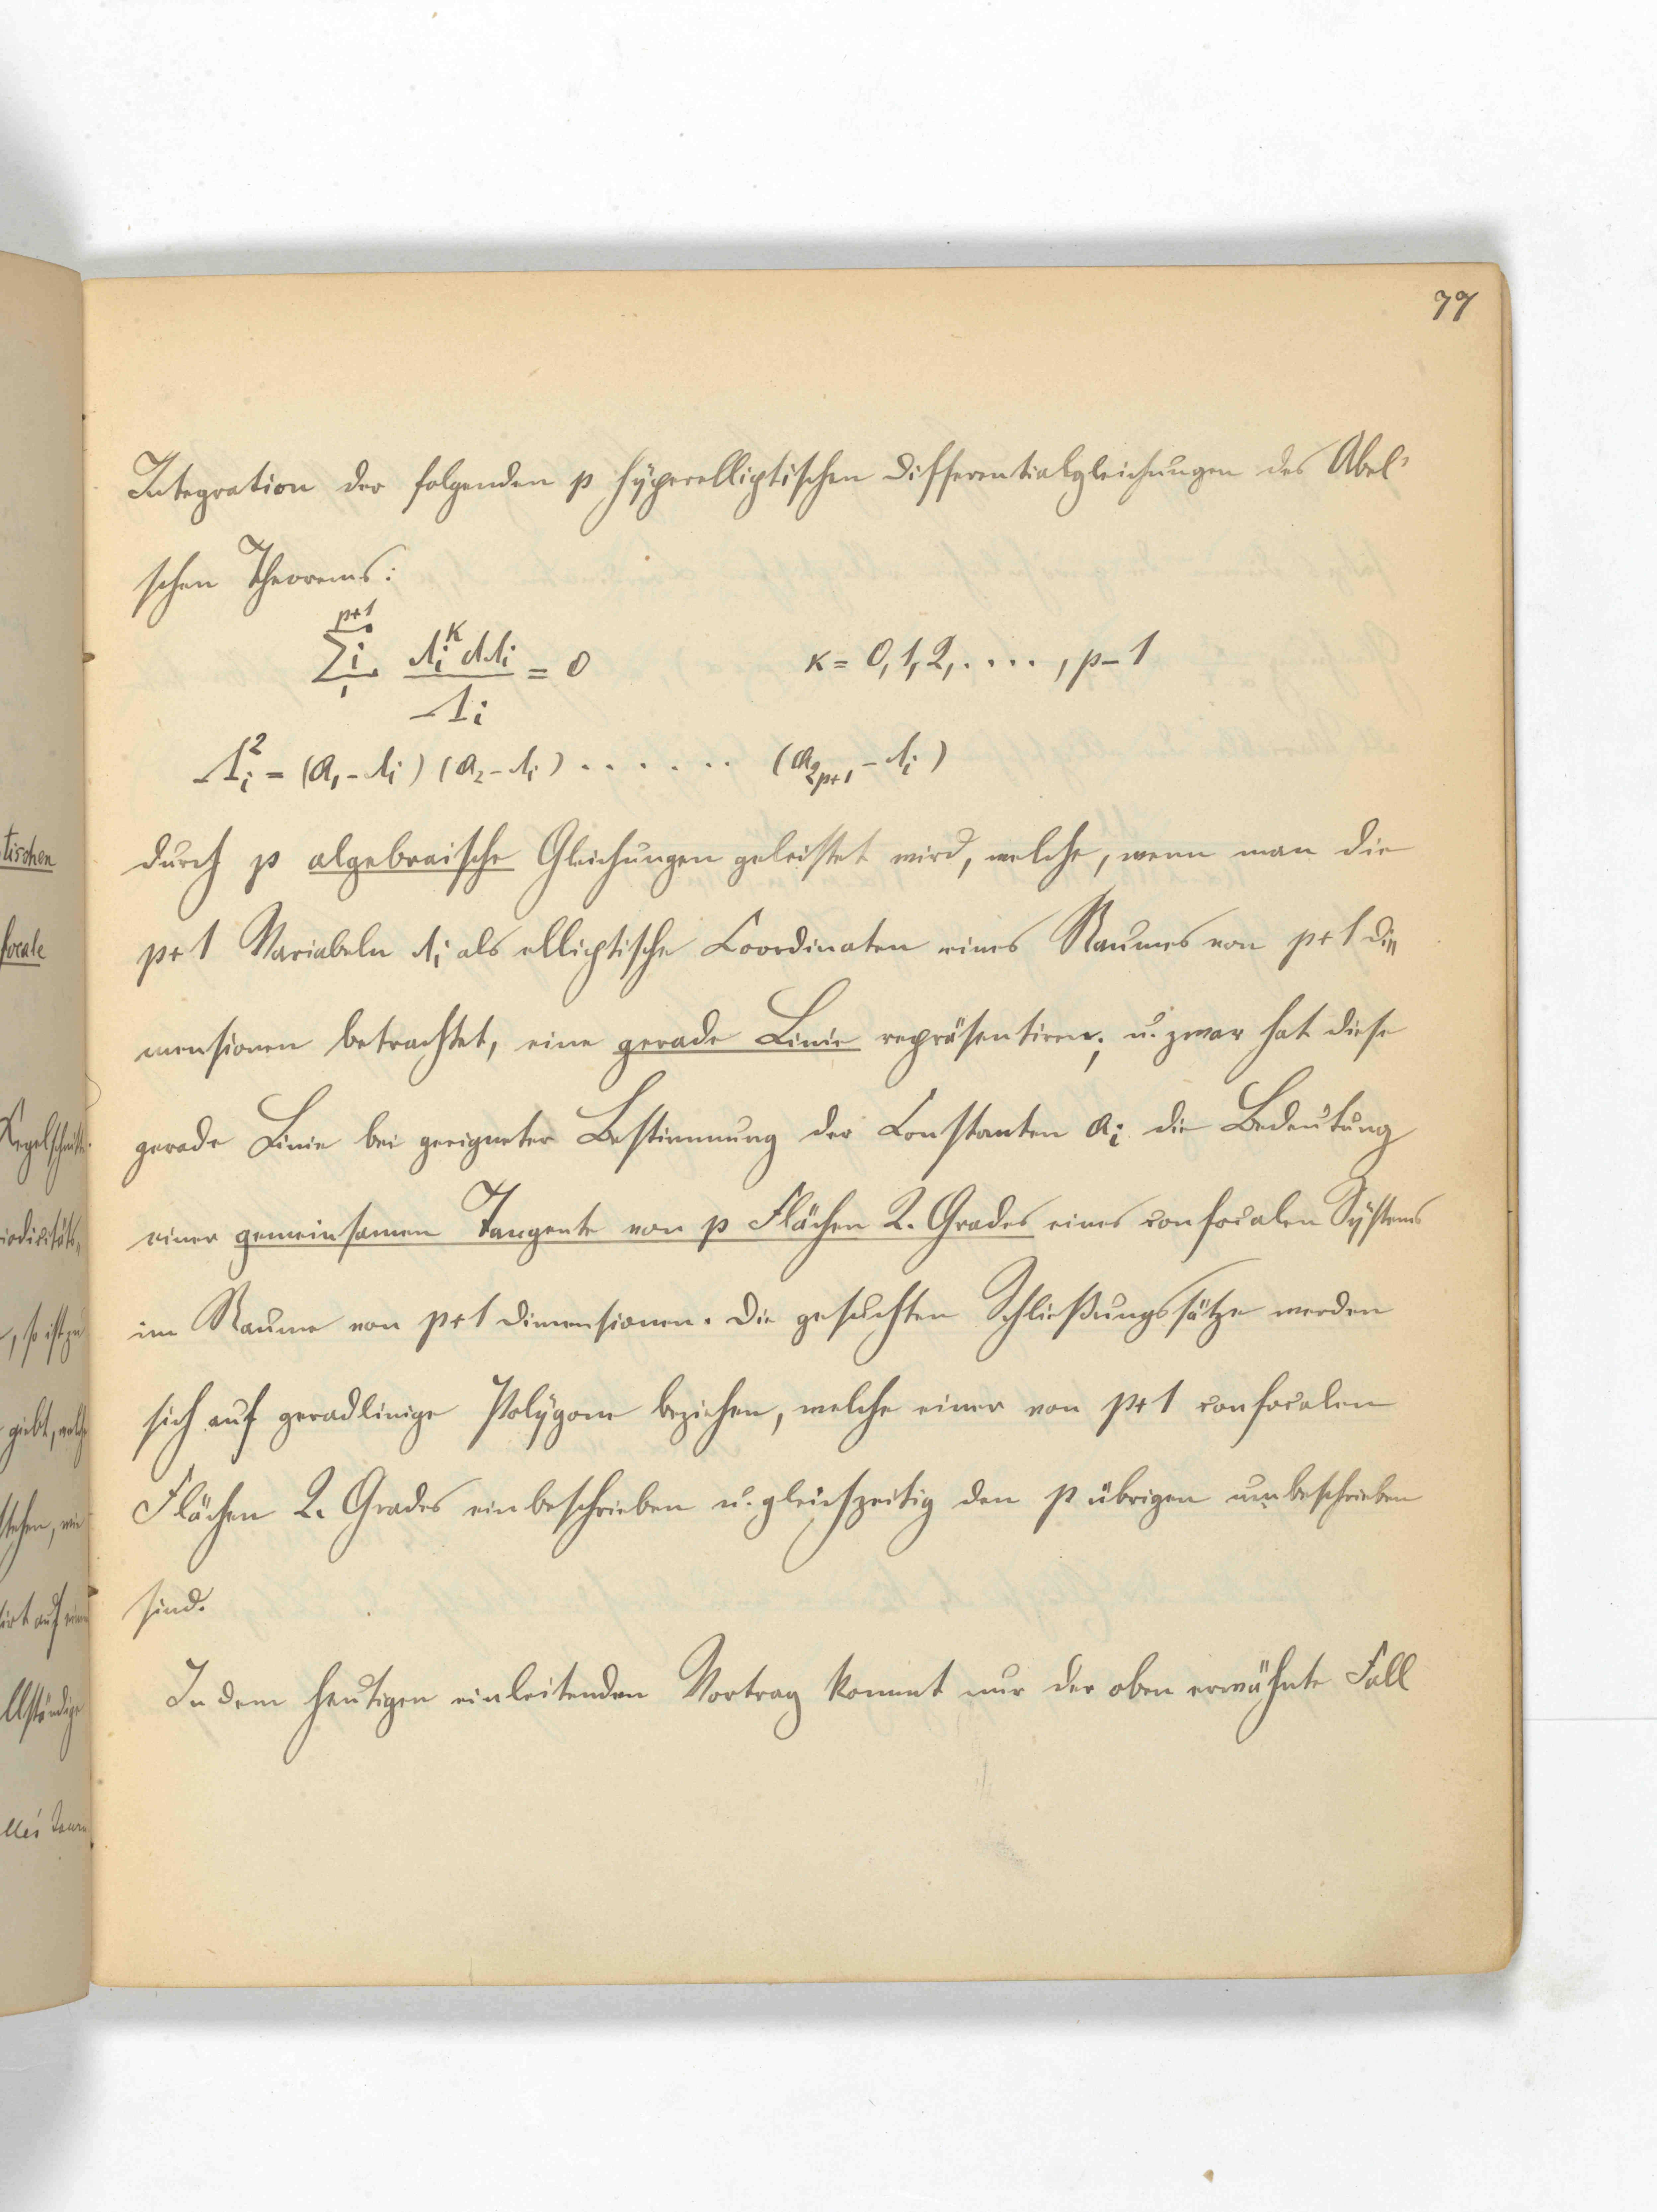 77
Integration der folgenden p hyperelliptischen Differentialgleichungen des Abel'
schen Theorems:
p+1
∑i λi^κ dλi / Λi = 0   κ = 0, 1, 2, . . . . , p – 1
1
Λi² = (a₁ – λi) (a₂ – λi) . . . . . . (a₂ₚ₊₁ – λi)
durch p algebraische Gleichungen geleistet wird, welche, wenn man die
p+1 Variabeln λi als elliptische Coordinaten eines Raumes von p+1 Di„
mensionen betrachtet, eine gerade Linie repräsentiren; u. zwar hat diese
gerade Linie bei geeigneter Bestimmung der Constanten ai die Bedeutung
einer gemeinsamen Tangente von p Flächen 2. Grades eines confocalen Systems
im Raume von p+1 Dimensionen. Die gesuchten Schließungssätze werden
sich auf geradlinige Polygone beziehen, welche einer von p+1 confocalen
Flächen 2. Grades einbeschrieben u. gleichzeitig den p übrigen umbeschrieben
sind.
In dem heutigen einleitenden Vortrag kommt nur der oben erwähnte Fall
tischen
focale
Kegelschnitte.
iodicitäts„
, so ist zu
giebt, welche
stehen, wie
irt auf einen
llständige